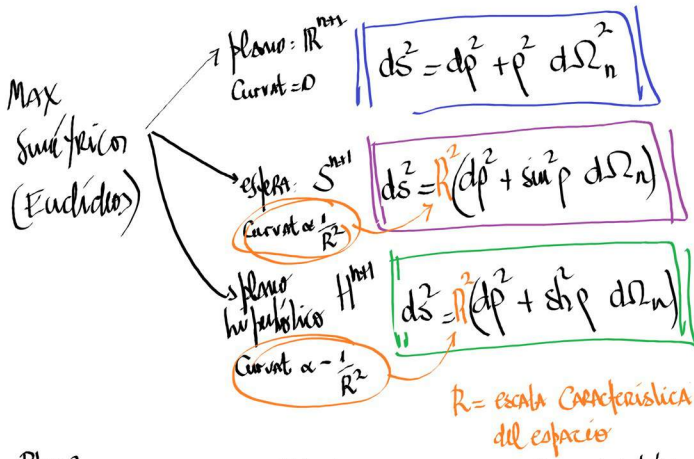 Max
Simétricos
(Euclídeos)
plano: ℝⁿ⁺¹
Curvat = 0
ds² = dρ² + ρ² dΩₙ²
esfera: Sⁿ⁺¹
Curvat ∝ 1/R²
ds² = R²(dρ² + sin²ρ dΩₙ)
plano
hiperbólico Hⁿ⁺¹
Curvat ∝ - 1/R²
ds² = R²(dρ² + sh²ρ dΩₙ)
R = escala característica
del espacio